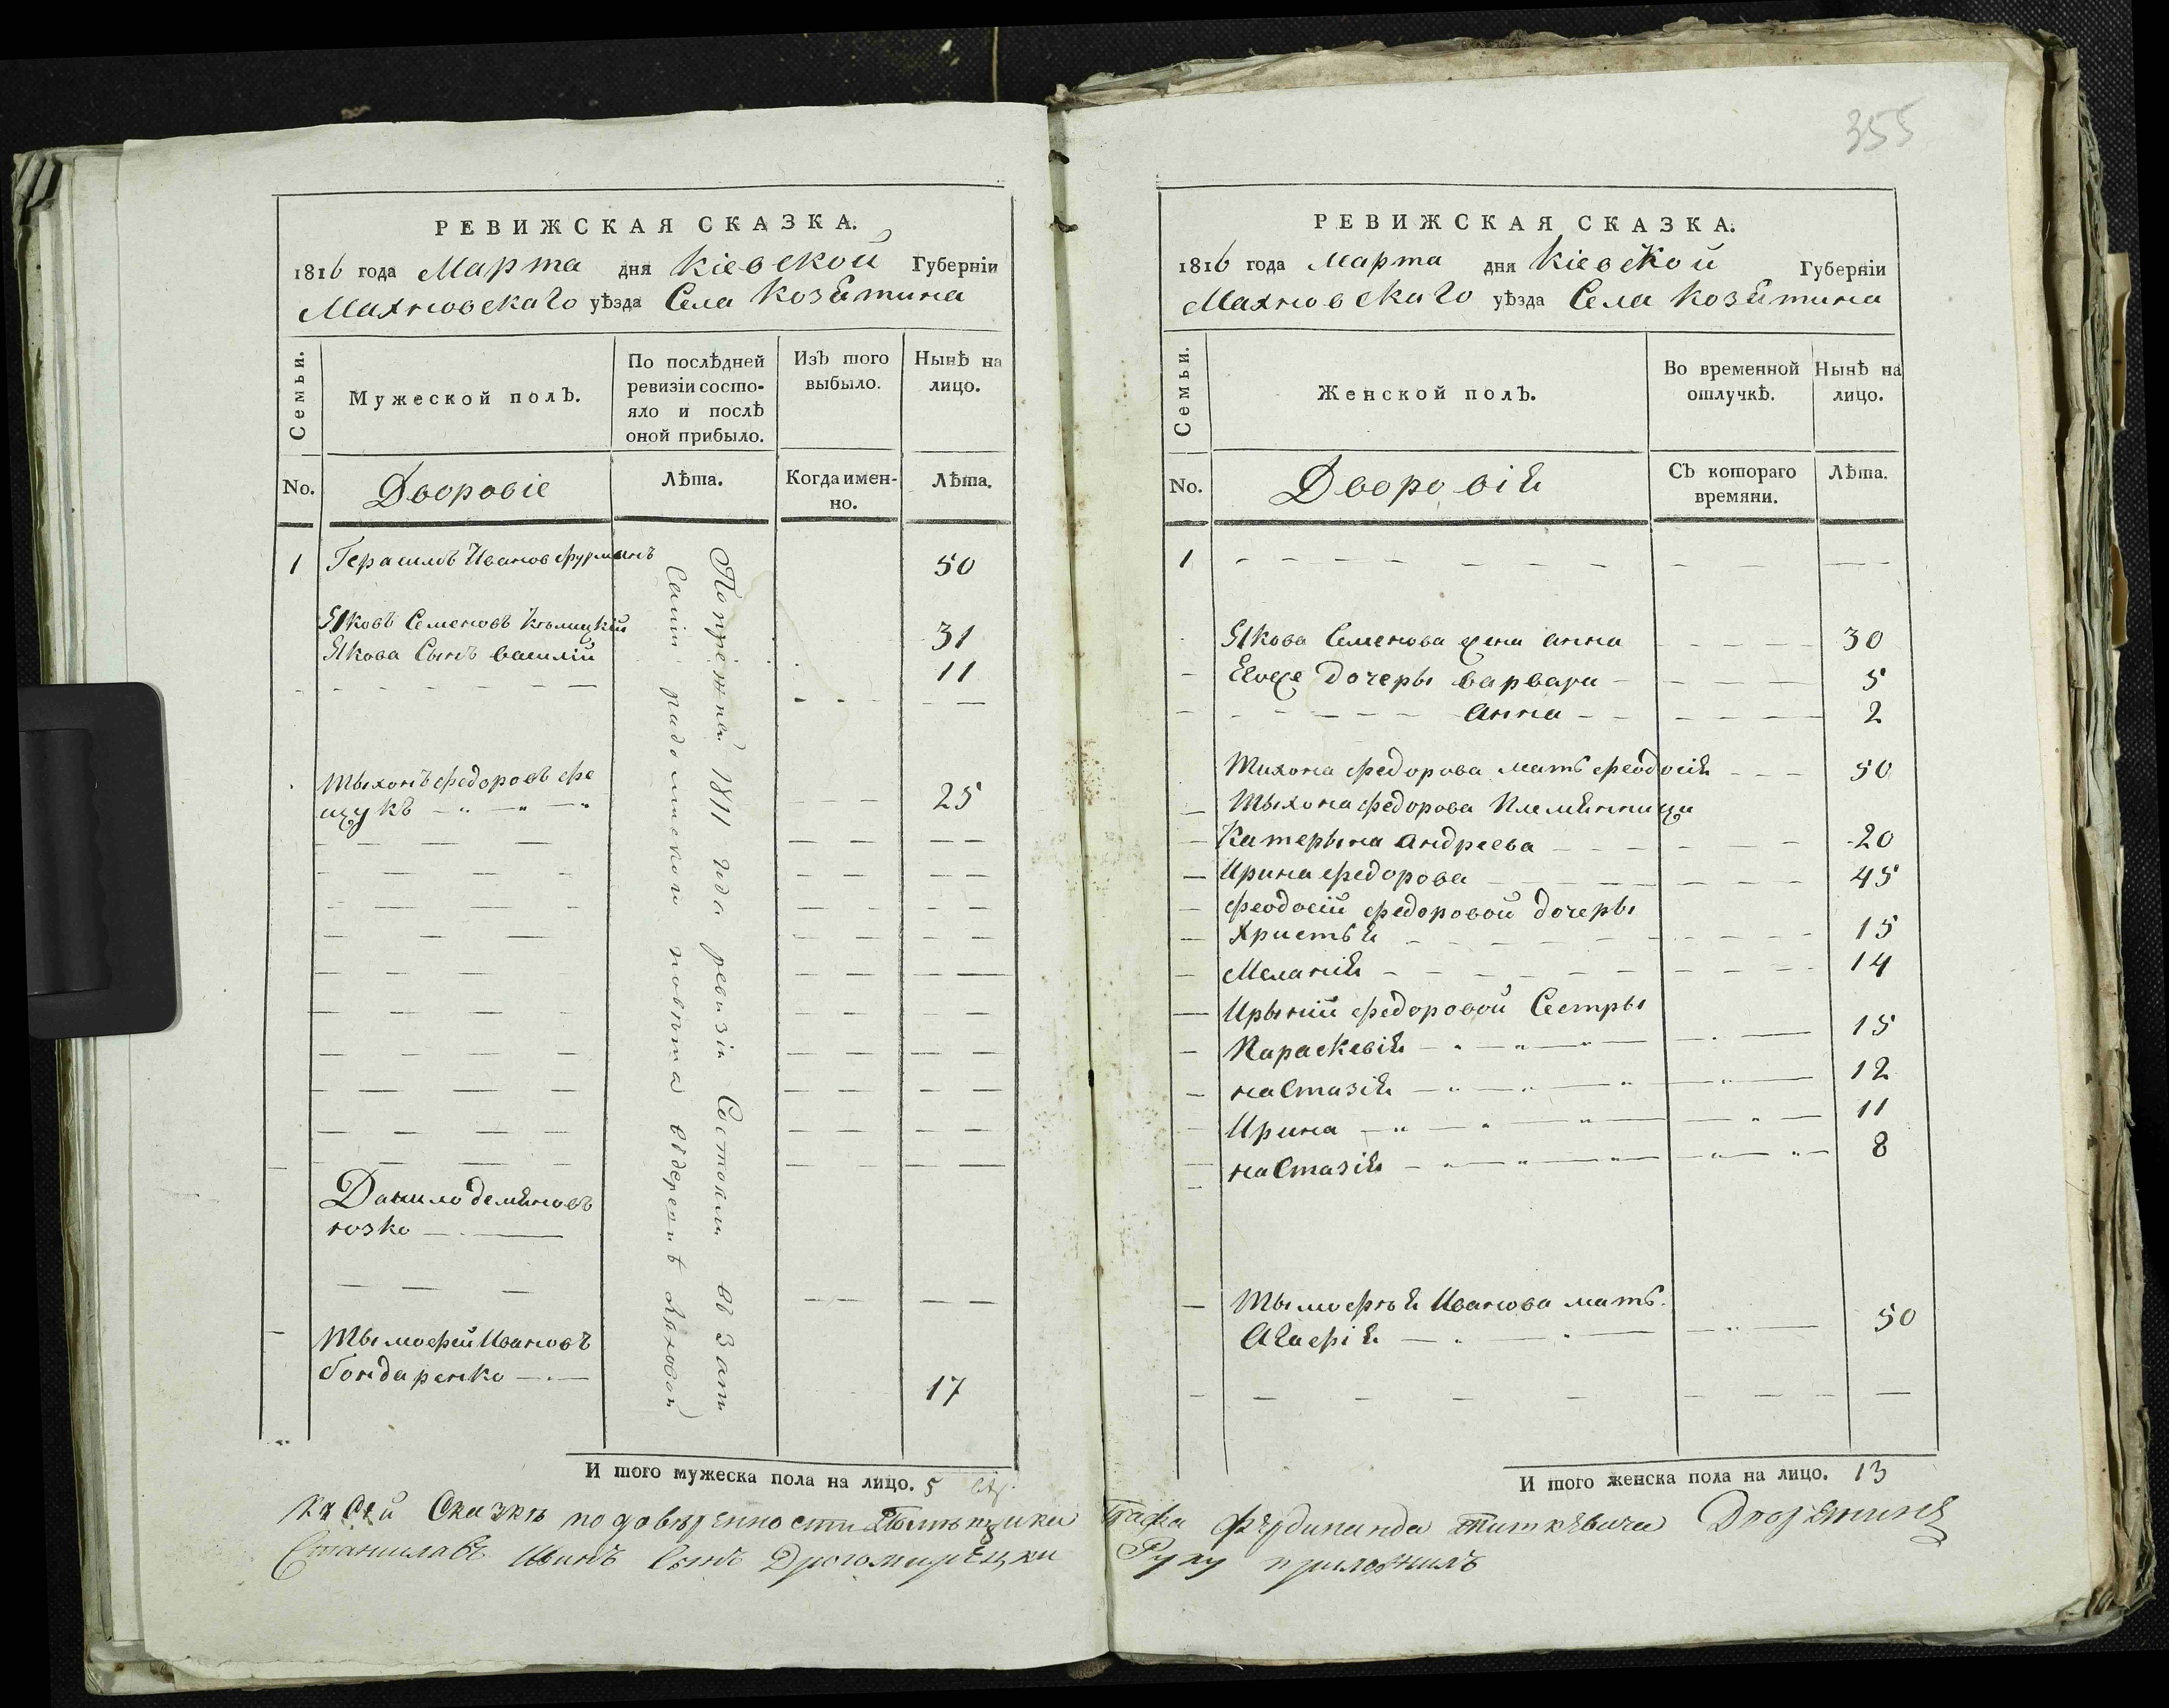 РЕВИЖСКАЯ СКАЗКА.
1816 года Марта дня Кіевской Губерніи
Махновскаго уѣзда Села Козятина
Семьи.
Мужеской полъ.
По послѣдней
ревизіи состо-
яло и послѣ
оной прибыло.
Изъ того
выбыло.
Нынѣ на
лицо.
No.
Дворовіе
Лѣта.
Когда имен-
но.
Лѣта.
1 Герасимъ Иванов фурманъ 50
Яковъ Семеновъ 31
Якова Сынъ василій 11
Тыхонъ федоровъ фе
щукъ 25
Данило демяновъ
гозко
Тымофей Ивановъ
бондаренко 17
По прежней 1811 года ревизіи Состояли въ Запи
Саніи радомисского повѣта вдеревнѣ Ляховой
И того мужеска пола на лицо. 5
355
РЕВИЖСКАЯ СКАЗКА.
1816 года Марта дня Кіевской Губерніи
Махновскаго уѣзда Села Козятина
Семьи.
Женской полъ.
Во временной
отлучкѣ.
Нынѣ на
лицо.
No.
Дворовія
Съ котораго
времяни.
Лѣта.
1
Якова Семенова жена анна 30
Евоже дочеры варвара 5
анна 2
Тихона федорова мать феодосія 50
Тыхона федорова Племянница
Катерына андреева 20
Ирина федорова 45
феодосіи федоровой дочеры
Христья 15
Меланія 14
Ирыніи федоровой Сестры
Параскевія 15
настазія 12
Ирина 11
настазія 8
Тымофея Иванова мать
Агафія 50
И того женска пола на лицо. 13
Къ Сей Сказкѣ по довѣренности Помѣщика Графа Фердинанда Тишкевича
Станилавъ Сынъ Руку приложилъ